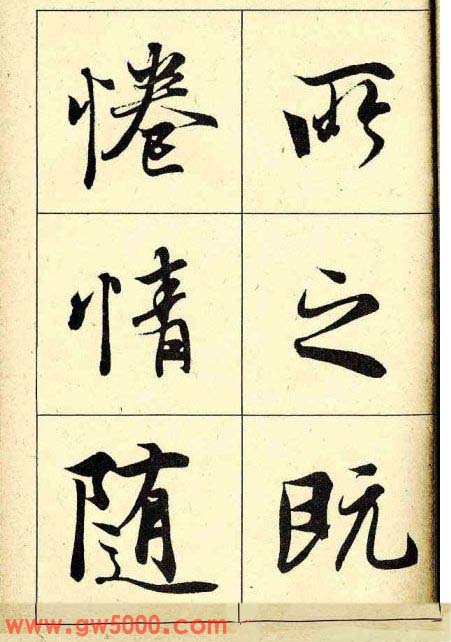 所之既
倦情随
www.gw5000.com